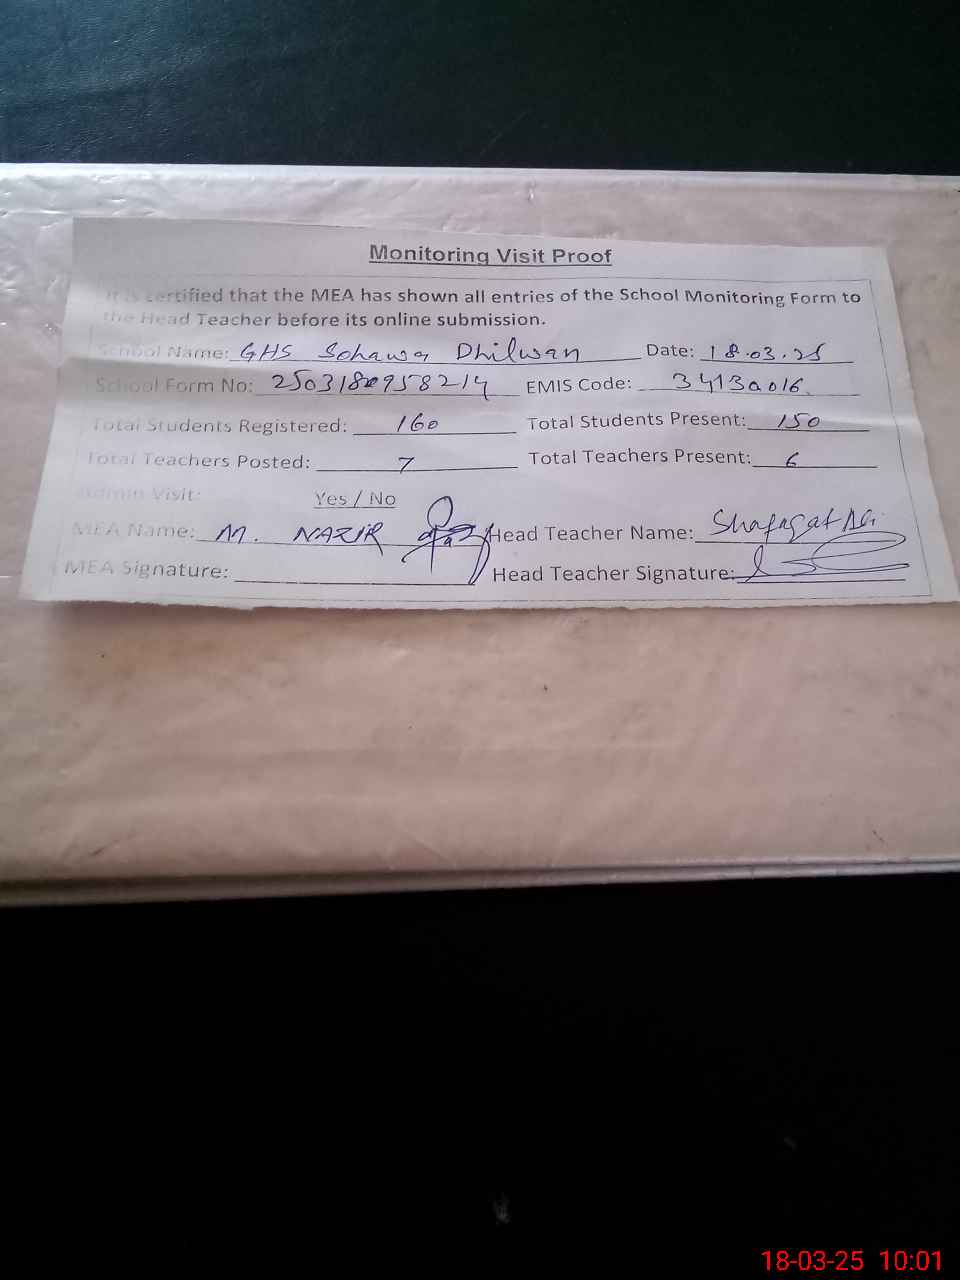 Monitoring Visit Proof
It is certified that the MEA has shown all entries of the School Monitoring Form to
the Head Teacher before its online submission.
School Name: GHS Sohawa Dhilwan Date: 18.03.25
School Form No: 2503180958214 EMIS Code: 34130016
Total Students Registered: 160 Total Students Present: 150
Total Teachers Posted: 7 Total Teachers Present: 6
Admin Visit: Yes / No
MEA Name: M. NAZIR Head Teacher Name: Shafaqat Ali
MEA Signature: Head Teacher Signature:
18-03-25 10:01